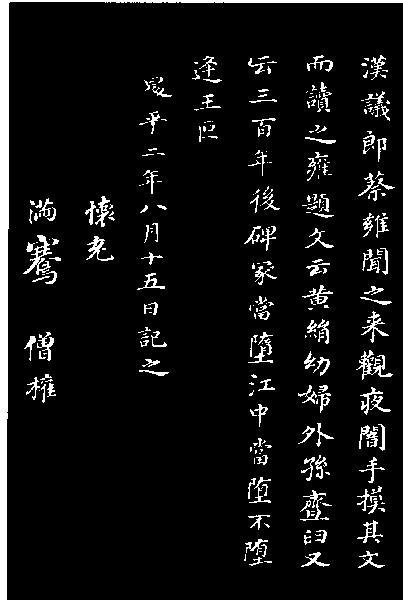 漢議郎蔡雍聞之来觀夜闇手摸其文
而讀之雍題文云黄絹幼婦外孫齏臼又
云三百年後碑冢當墮江中當墮不墮
逢王叵
昇平二年八月十五日記之
懷充
滿騫
僧權